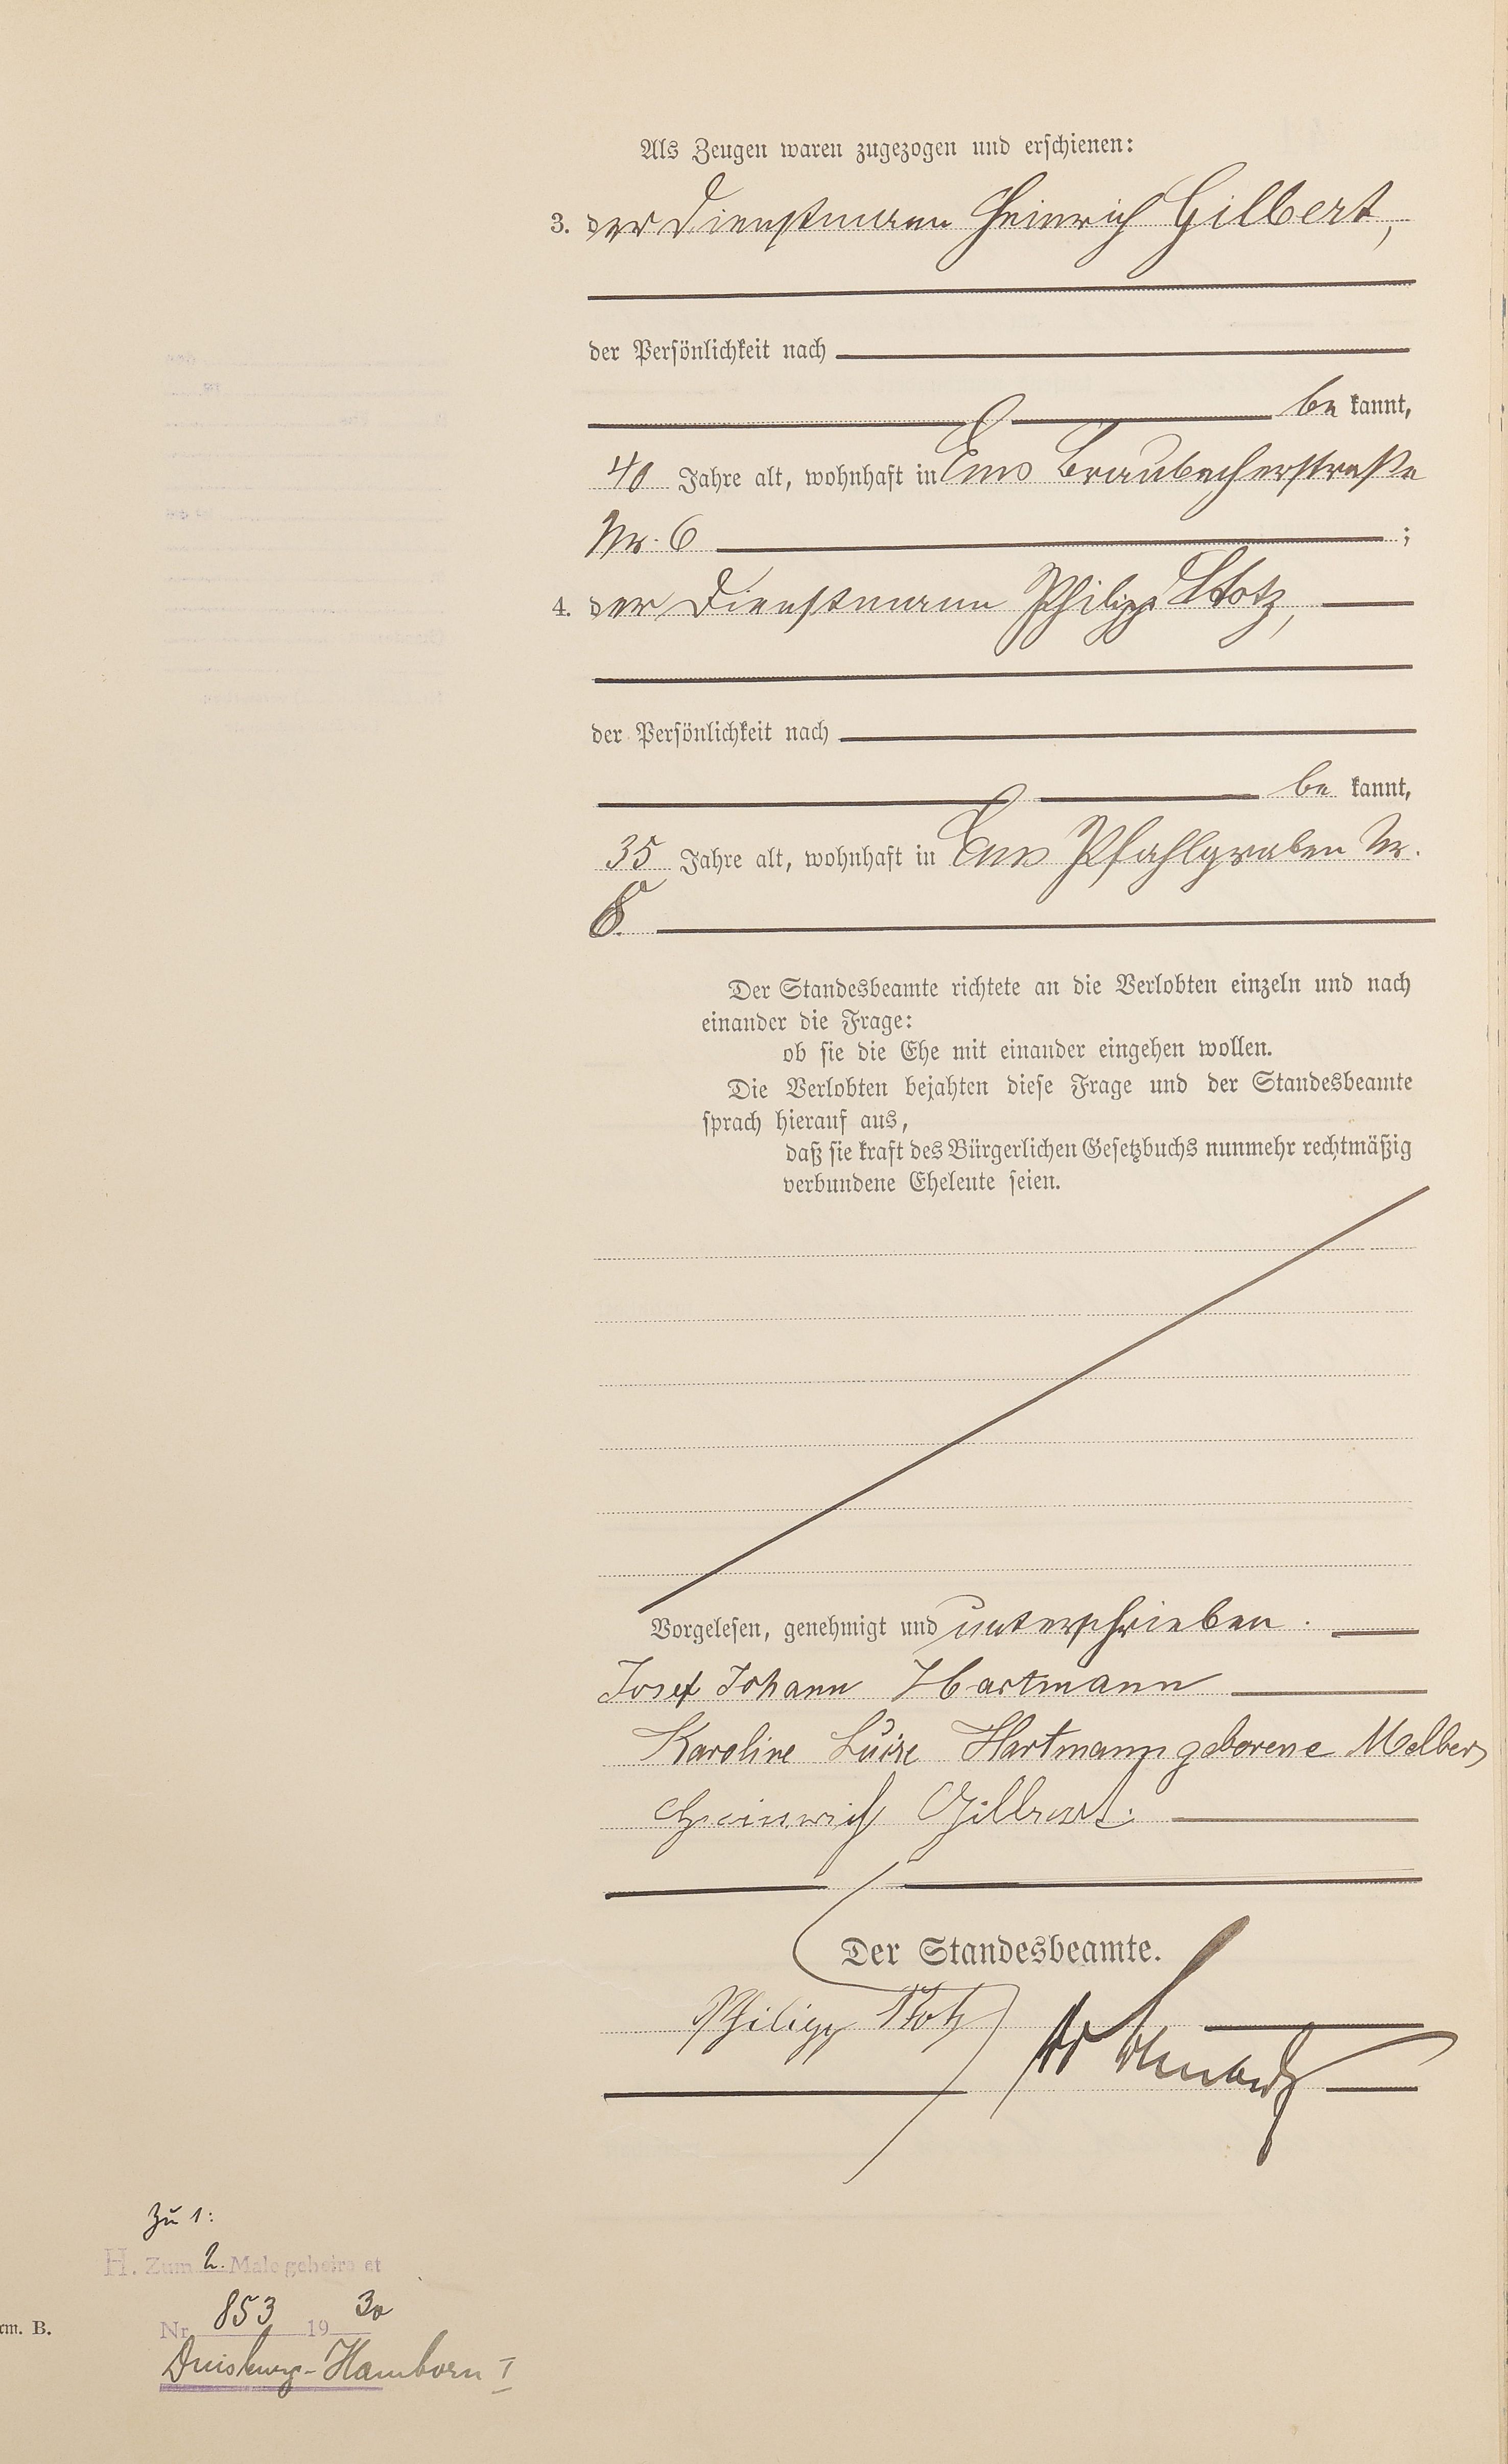 Als Zeugen waren zugezogen und erschienen:
3. der Dienstmann Heinrich Gilbert,
der Persönlichkeit nach
be kannt,
40 Jahre alt, wohnhaft in Ems Braubacherstraße
Nr. 6 ;
4. der Dienstmann Philipp Stotz,
der Persönlichkeit nach
be kannt,
35 Jahre alt, wohnhaft in Ems Pfahlgraben Nr.
8.
Der Standesbeamte richtete an die Verlobten einzeln und nach
einander die Frage:
ob sie die Ehe mit einander eingehen wollen.
Die Verlobten bejahten diese Frage und der Standesbeamte
sprach hierauf aus,
daß sie kraft des Bürgerlichen Gesetzbuchs nunmehr rechtmäßig
verbundene Eheleute seien.
Vorgelesen, genehmigt und unterschrieben.
Josef Johann Hartmann
Karoline Luise Hartmann geborene Melbers
Heinrich Gilbert.
Der Standesbeamte.
Philipp Stotz
Zu 1:
H. Zum 2. Male geheiratet
Nr. 853 1930
Duisburg-Hamborn I
rm. B.